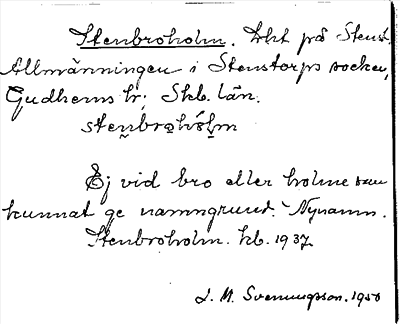 Stenbroholm. Lht på Stenst.
Allmänningen i Stenstorps socken,
Gudhems hr; Skb. län.
stenbroholm
Ej vid bro eller holme som
kunnat ge namngrund. Nynamn.
Stenbroholm. kb. 1937
J. M. Svennungsson. 1950